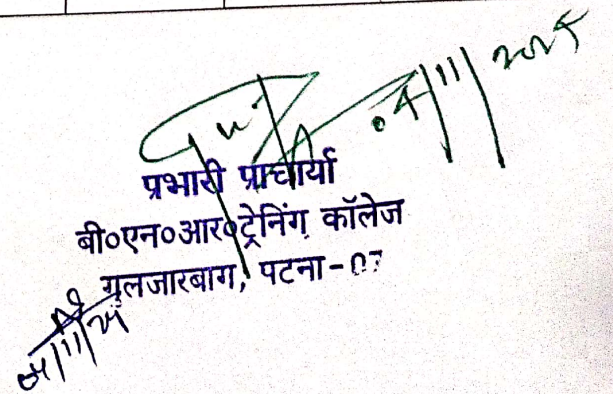 04/11/2025
प्रभारी प्राचार्या
बी०एन०आर०ट्रेनिंग कॉलेज
गुलजारबाग, पटना-07